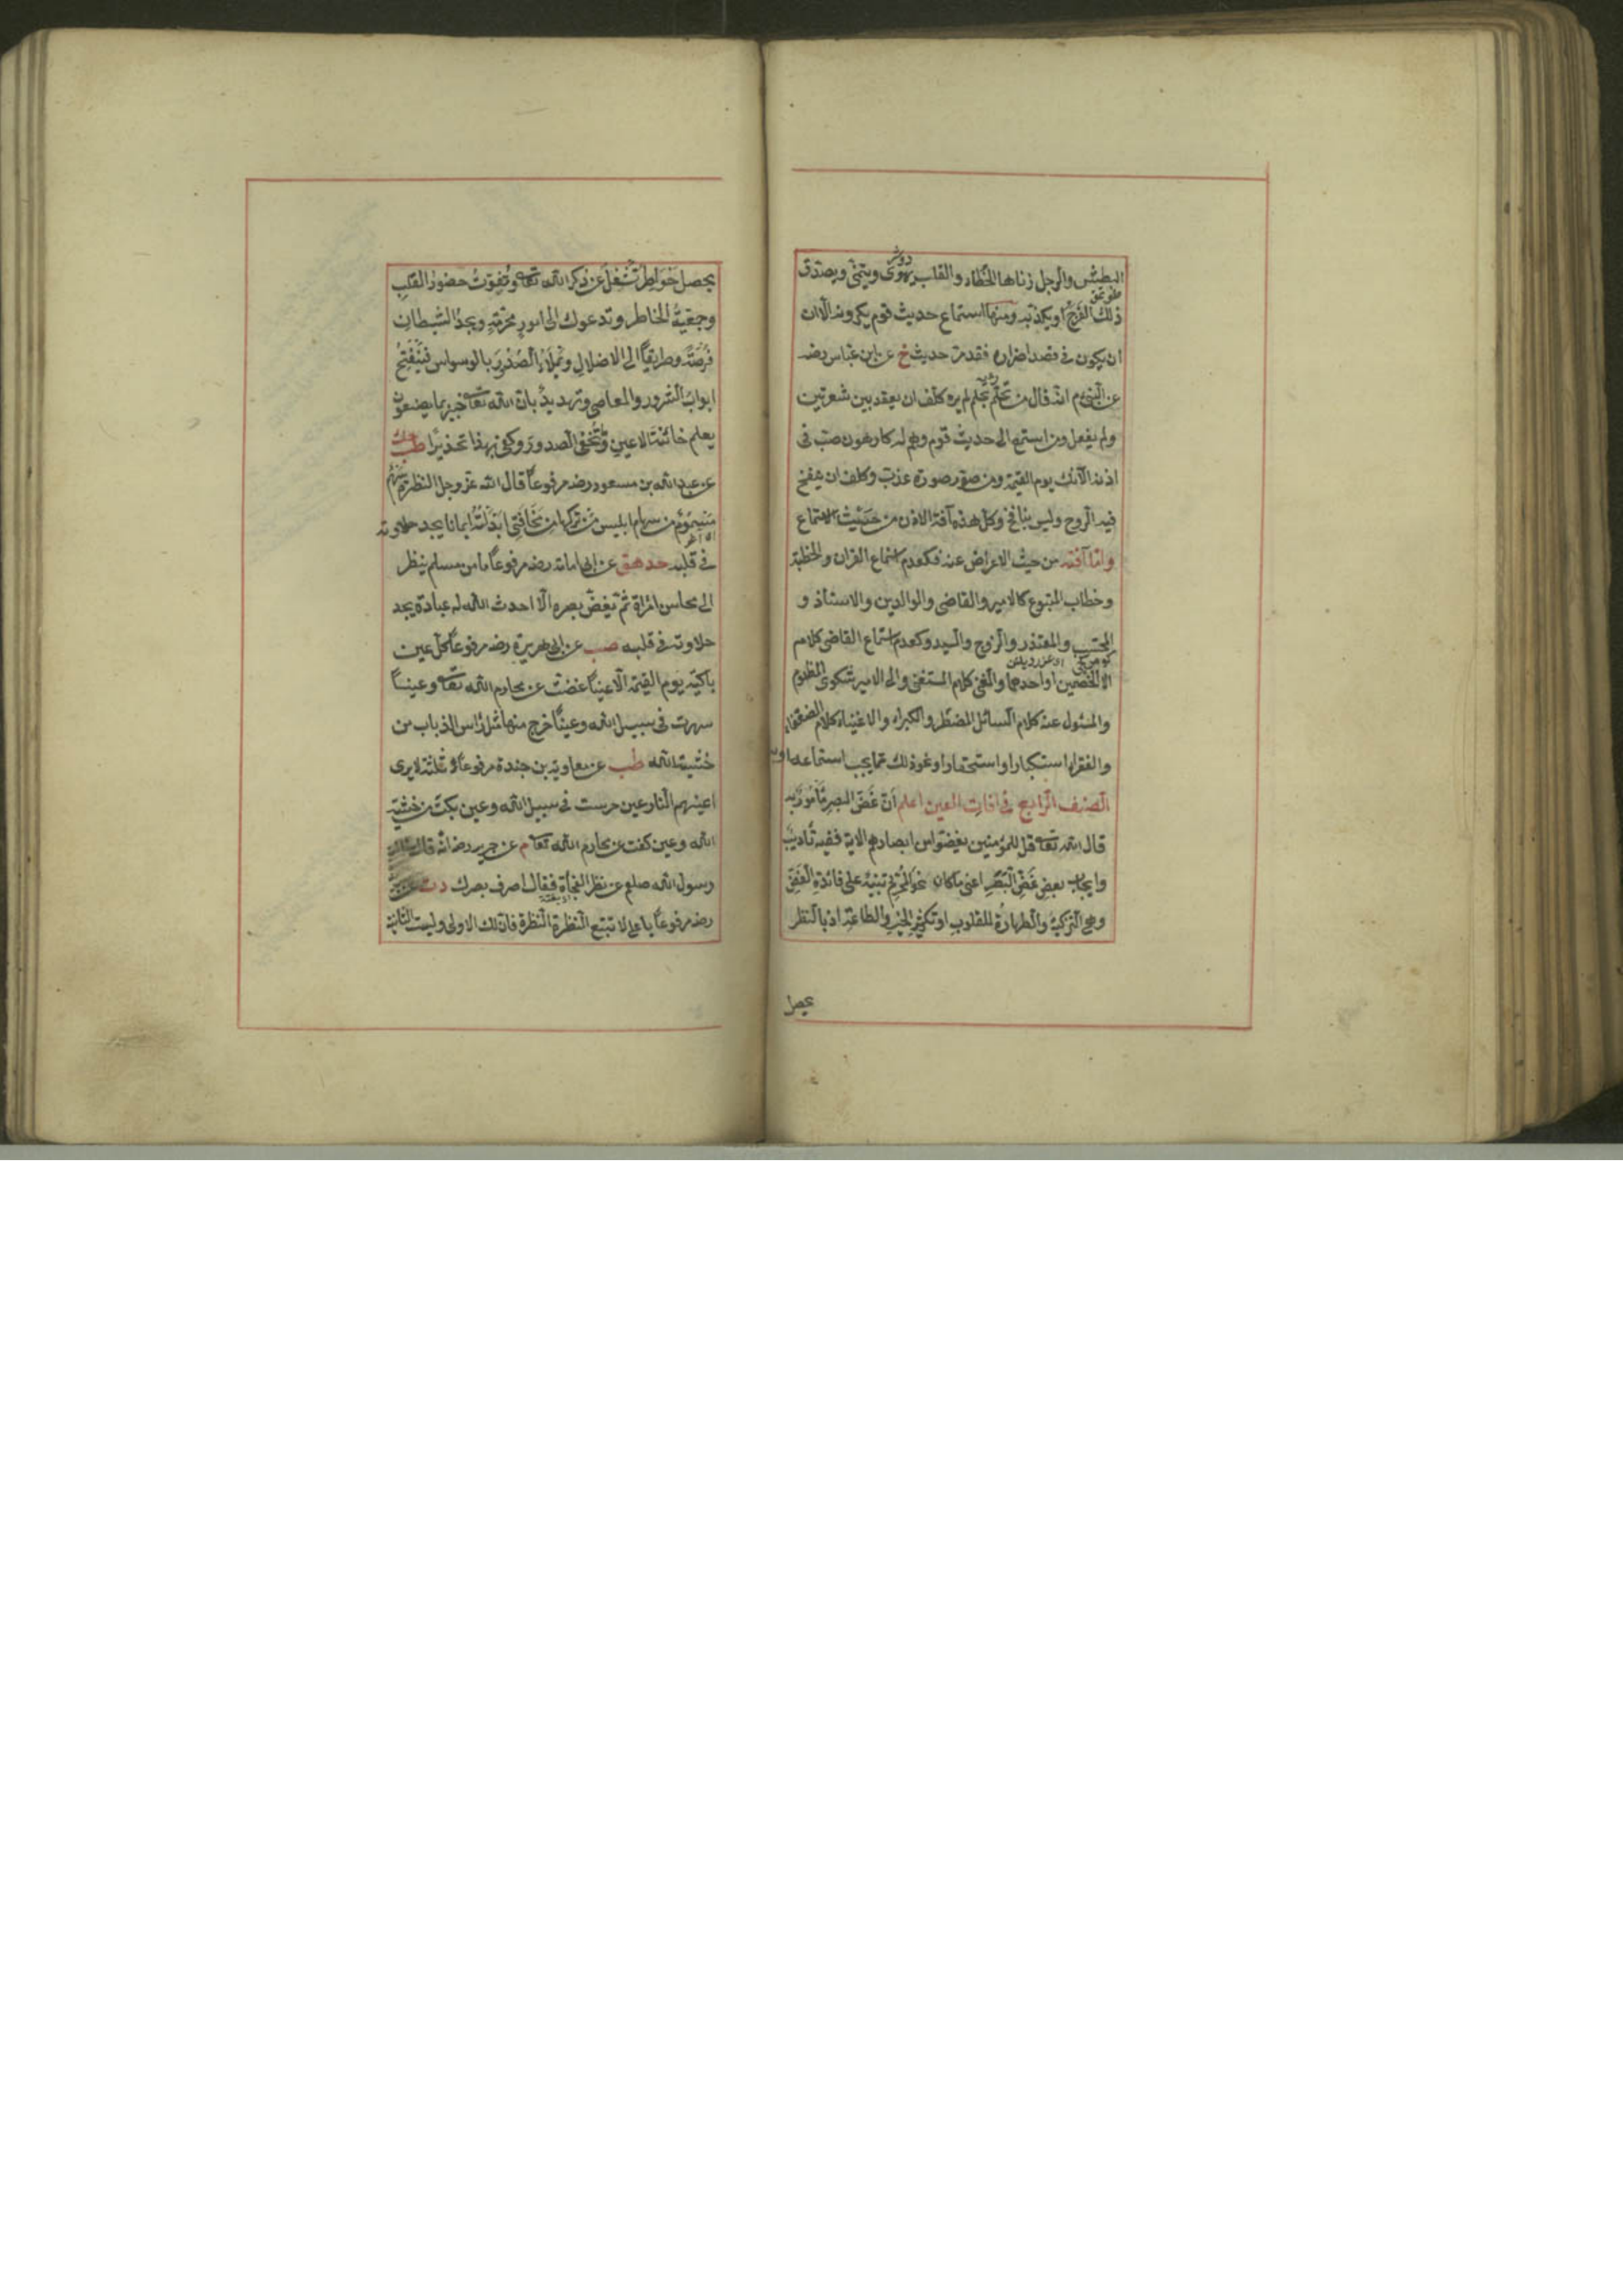 البطش والرجل زناها الخطاء والقلب يهوى ويتمنى ويصدق
ذلك الفرج او يكذبه ومنها استماع حديث قوم يكرهونه الا ان
ان يكون في قصد اضراره فقد مر حديث خ عن ابن عباس رضه
عن النبي م انه قال من تحلم بحلم لم يره كلف ان يعقد بين شعرتين
ولم يفعل ومن استمع الى حديث قوم وهم له كارهون صب في
اذنه الآنك يوم القيمة ومن صور صورة عذب وكلف ان ينفخ
فيه الروح وليس بنافخ وكل هذه آفة الاذن من حيث الاستماع
واما آفته من حيث الاعراض عنه فكعدم استماع القران والخطبة
وخطاب المتبوع كالامير والقاضي والوالدين والاستاذ و
المحتسب والمعتذر والزوج والسيد وكعدم استماع القاضي كلام
الخصمين او احدهما والمفتي كلام المستفتي والى الامير شكوى المظلوم
والمسئول عنه كلام السائل المضطر والكبراء والاغنياء كلام الضعفاء
والفقراء استكبارا واستحقارا ونحو ذلك مما يجب استماعه
الصنف الرابع في افات العين اعلم ان غض البصر مأمور به
قال الله تعا قل للمؤمنين يغضوا من ابصارهم الاية ففيه تأديب
وايجاب بعض غض البصر اعني ما كان نحو المحرم تنبيه على فائدة الغض
وهي التزكية والطهارة للقلوب او تكثير الخير والطاعة اذ بالنظر
يحصل
يحصل خواطر تشغل عن ذكر الله تعا وتفوت حضور القلب
وجمعية الخاطر وتدعوك الى امور محرمة ويجد الشيطان
فرصة وطريقا الى الاضلال ويملأ الصدر بالوسواس فينفتح
ابواب الشرور والمعاصي وتهديد بان الله تعا خبير بما يصنعون
يعلم خائنة الاعين وما تخفى الصدور وكفى بهذا تحذيرا طب
عن عبد الله بن مسعود رضه مرفوعا قال الله عز وجل النظرة سهم
مسموم من سهام ابليس من تركها من مخافتي ابدلته ايمانا يجد حلاوته
في قلبه حد هق عن ابي امامة رضه مرفوعا ما من مسلم ينظر
الى محاسن امراة ثم يغض بصره الا احدث الله له عبادة يجد
حلاوته في قلبه صب عن ابي هريرة رضه مرفوعا كل عين
باكية يوم القيمة الا عينا غضت عن محارم الله تعا وعينا
سهرت في سبيل الله وعينا خرج منها مثل رأس الذباب من
خشية الله طب عن معاوية بن جندة مرفوعا ثلثة لا يرى
اعينهم النار عين حرست في سبيل الله وعين بكت من خشية
الله وعين كفت عن محارم الله تعا م عن جرير رضه انه قال سألت
رسول الله صلعم عن نظر الفجأة فقال اصرف بصرك دت عن
رضه مرفوعا يا علي لا تتبع النظرة النظرة فان لك الاولى وليست الثانية